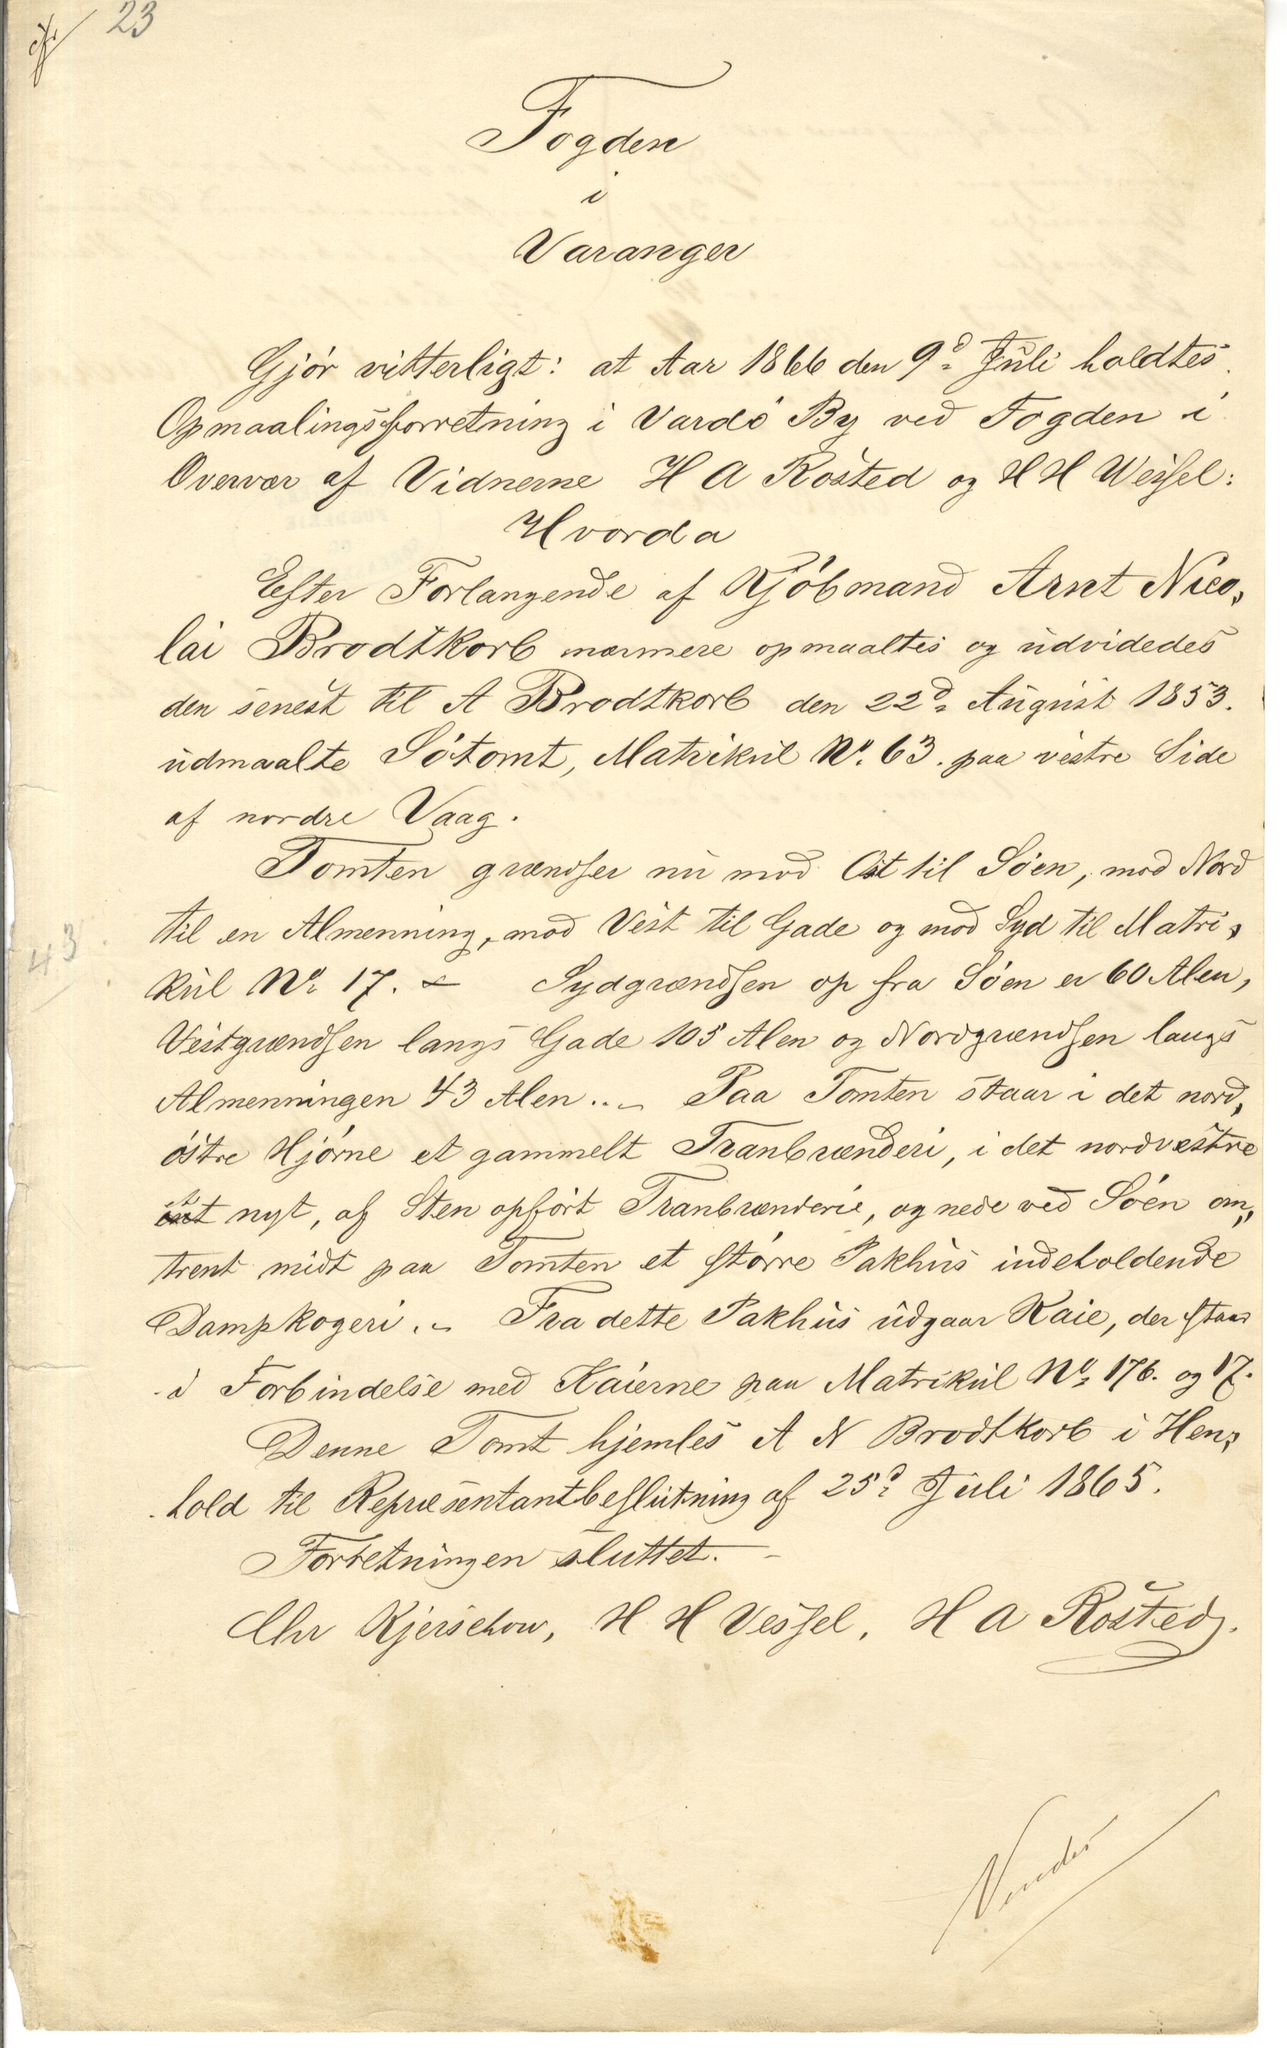 23
Fogden
i
Varanger
Gjör vitterligt: at Aar 1866 den 9d Juli holdtes
Opmaalingsforretning i Vardö By ved Fogden i
Overvær af Vidnerne H A Rosted og H H Wessel:
Hvorda
Efter Forlangende af Kjöbmand Arnt Nico„
lai Brodtkorb nærmere opmaaltes og udvidedes
den senest til A Brodtkorb den 22d August 1853.
udmaalte Sötomt, Matrikul No. 63. paa vestre Side
af nordre Vaag.
Tomten grændser nu mod Ost til Söen, mod Nord
til en Almenning, mod Vest til Gade og mod Syd til Matri„
kul No. 17. – Sydgrændsen op fra Söen er 60 Alen,
43
Vestgrændsen langs Gade 105 Alen og Nordgrændsen langs
Almenningen 43 Alen. – Paa Tomten staar i det nord„
östre Hjörne et gammelt Tranbrænderi, i det nordvestre
et nyt, af Sten opfört Tranbrænderie, og nede ved Söen om„
trent midt paa Tomten et större Pakhus indeholdende
Dampkogeri. – Fra dette Pakhus udgaar Kaie, der staar
i Forbindelse med Kaierne paa Matrikul No. 176. og 17.
Denne Tomt hjemles A N Brodtkorb i Hen„
hold til Repræsentantbeslutning af 25d Juli 1865.
Forretningen sluttet. –
Chr Kjerschow, H H Vessel, H A Rosted.
Vendes